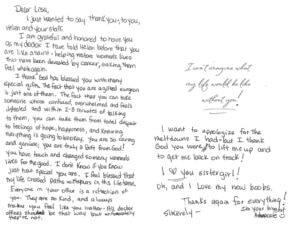 Dear Lisa,
I just wanted to say thank you, to you,
Helen and your staff.
I am grateful and honored to have you
as my doctor. I have told Helen before that you
are like a saint - helping restore women's lives
that have been devastated by cancer, making them
feel whole again.
I think God has blessed you with many
special gifts. The fact that you are a gifted surgeon
is just one of them. The fact that you can take
someone whose confused, overwhelmed and feels
defeated and within 2-3 minutes of talking
to them, you can take them from total despair
to feelings of hope, happiness, and knowing
everything is going to be okay. You are so caring
and genuine; you are truly a gift from God!
You have touch and changed so many womens
lives for the good. I don't know if you know
just how special you are. I feel blessed that
my life crossed paths with yours in this lifetime.
Everyone in your office is a reflection of
you. They are so kind, and always
make you feel like you matter. All doctor
offices should be that way but unfortunately
they're not.
I can't imagine what
my life would be like
without you!
I want to apologize for the
meltdowns I had - but I thank
God you were there to lift me up and
to get me back on track!
I ♡ you sistergirl!
Oh, and I Love my new boobs.
Thanks again for everything!
Sincerely -